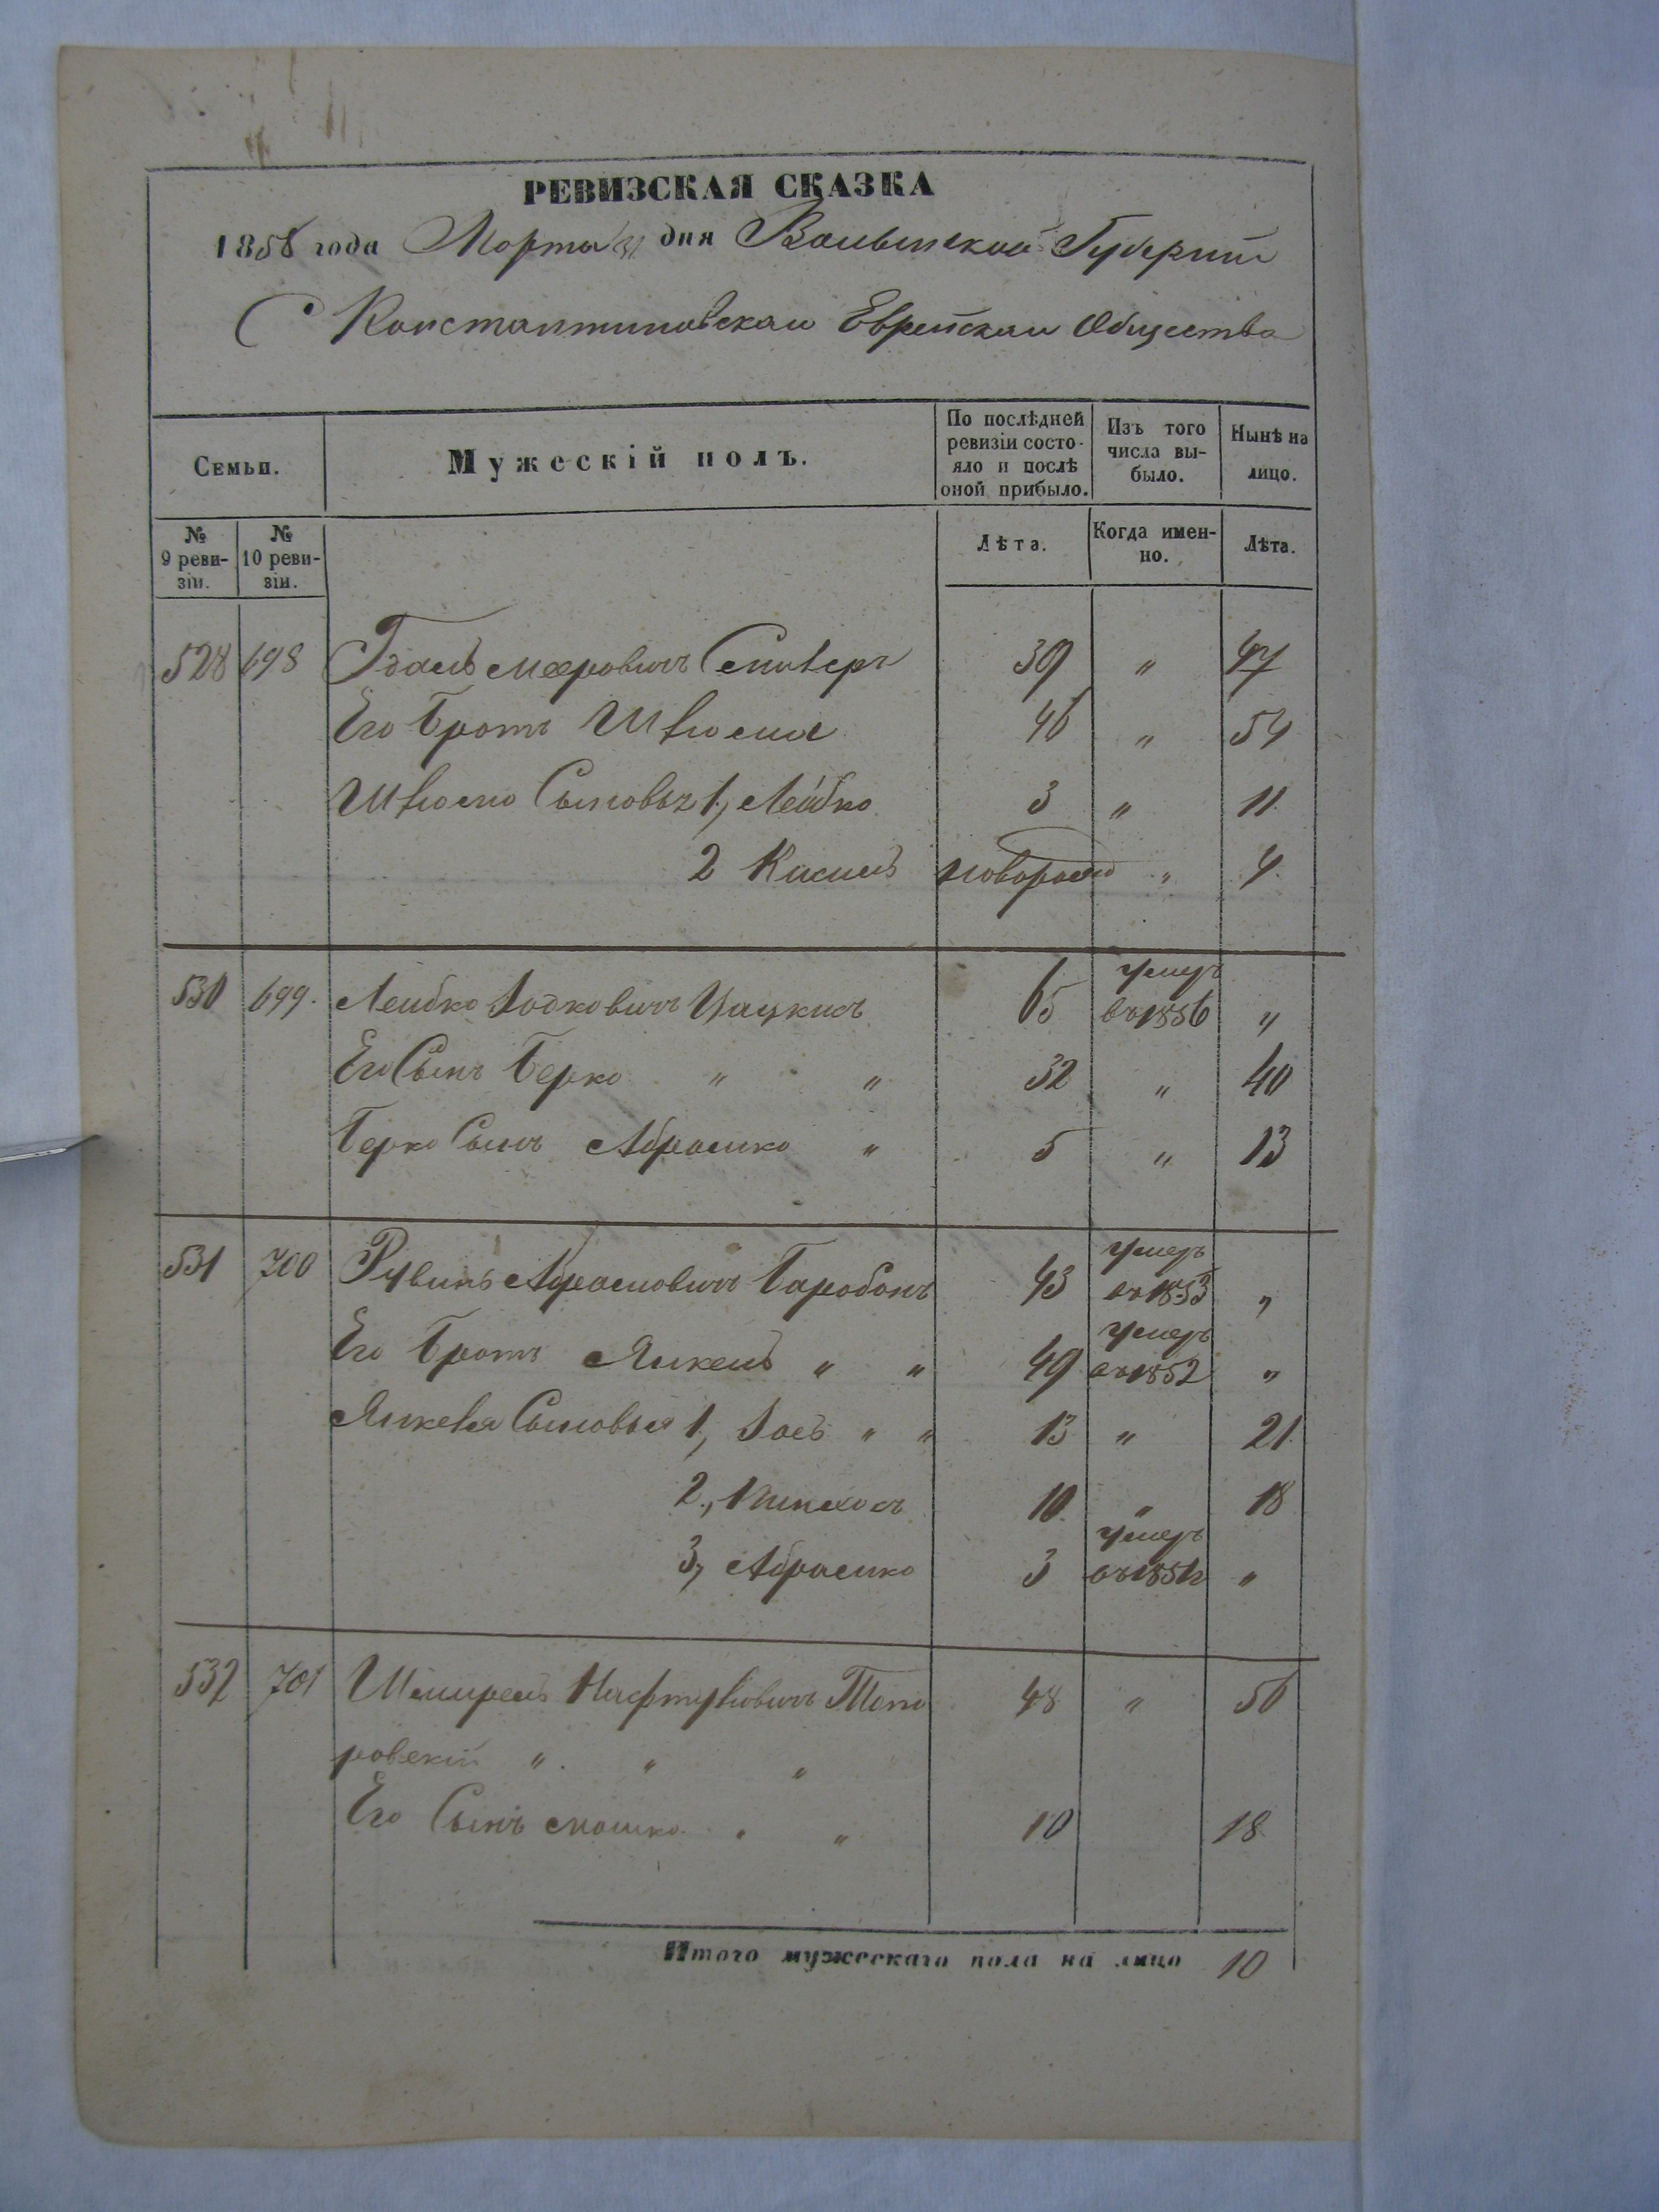 РЕВИЗСКАЯ СКАЗКА
1858 года Марта 31 дня Волынской Губерніи
С Константиновскаго Еврейскаго Общества
Семьи.
Мужескій полъ.
По послѣдней ревизіи состояло и послѣ оной прибыло.
Изъ того числа выбыло.
Нынѣ на лицо.
№ 9 ревизіи.
№ 10 ревизіи.
Лѣта.
Когда именно.
Лѣта.
528 698 Гдаль Мееровичъ 39 " 47
Его братъ Шлиома 46 " 54
Шлиомо Сыновья 1, Лейбко 3 " 11
2 Касиль новорож " 4
530 699. Лейбко Иоскович Цацкисъ 65 умеръ въ 1856 "
Его Сынъ Берко " " 32 " 40
Берко Сынъ Абрамко " 5 " 13
531 700 Рувинъ Абрамовичъ Барабанъ 43 умеръ въ 1853 "
Его братъ Янкель " " 49 умеръ въ 1852 "
Янкеля Сыновья 1, " " 13 " 21
2., Пинхасъ 10 " 18
3, Абрамко 3 умеръ "
532 701 Шмирель Нафтулювичъ Топо 48 " 56
ровскій " " "
Его Сынъ Мошко " " 10 18
Итого мужескаго пола на лицо 10